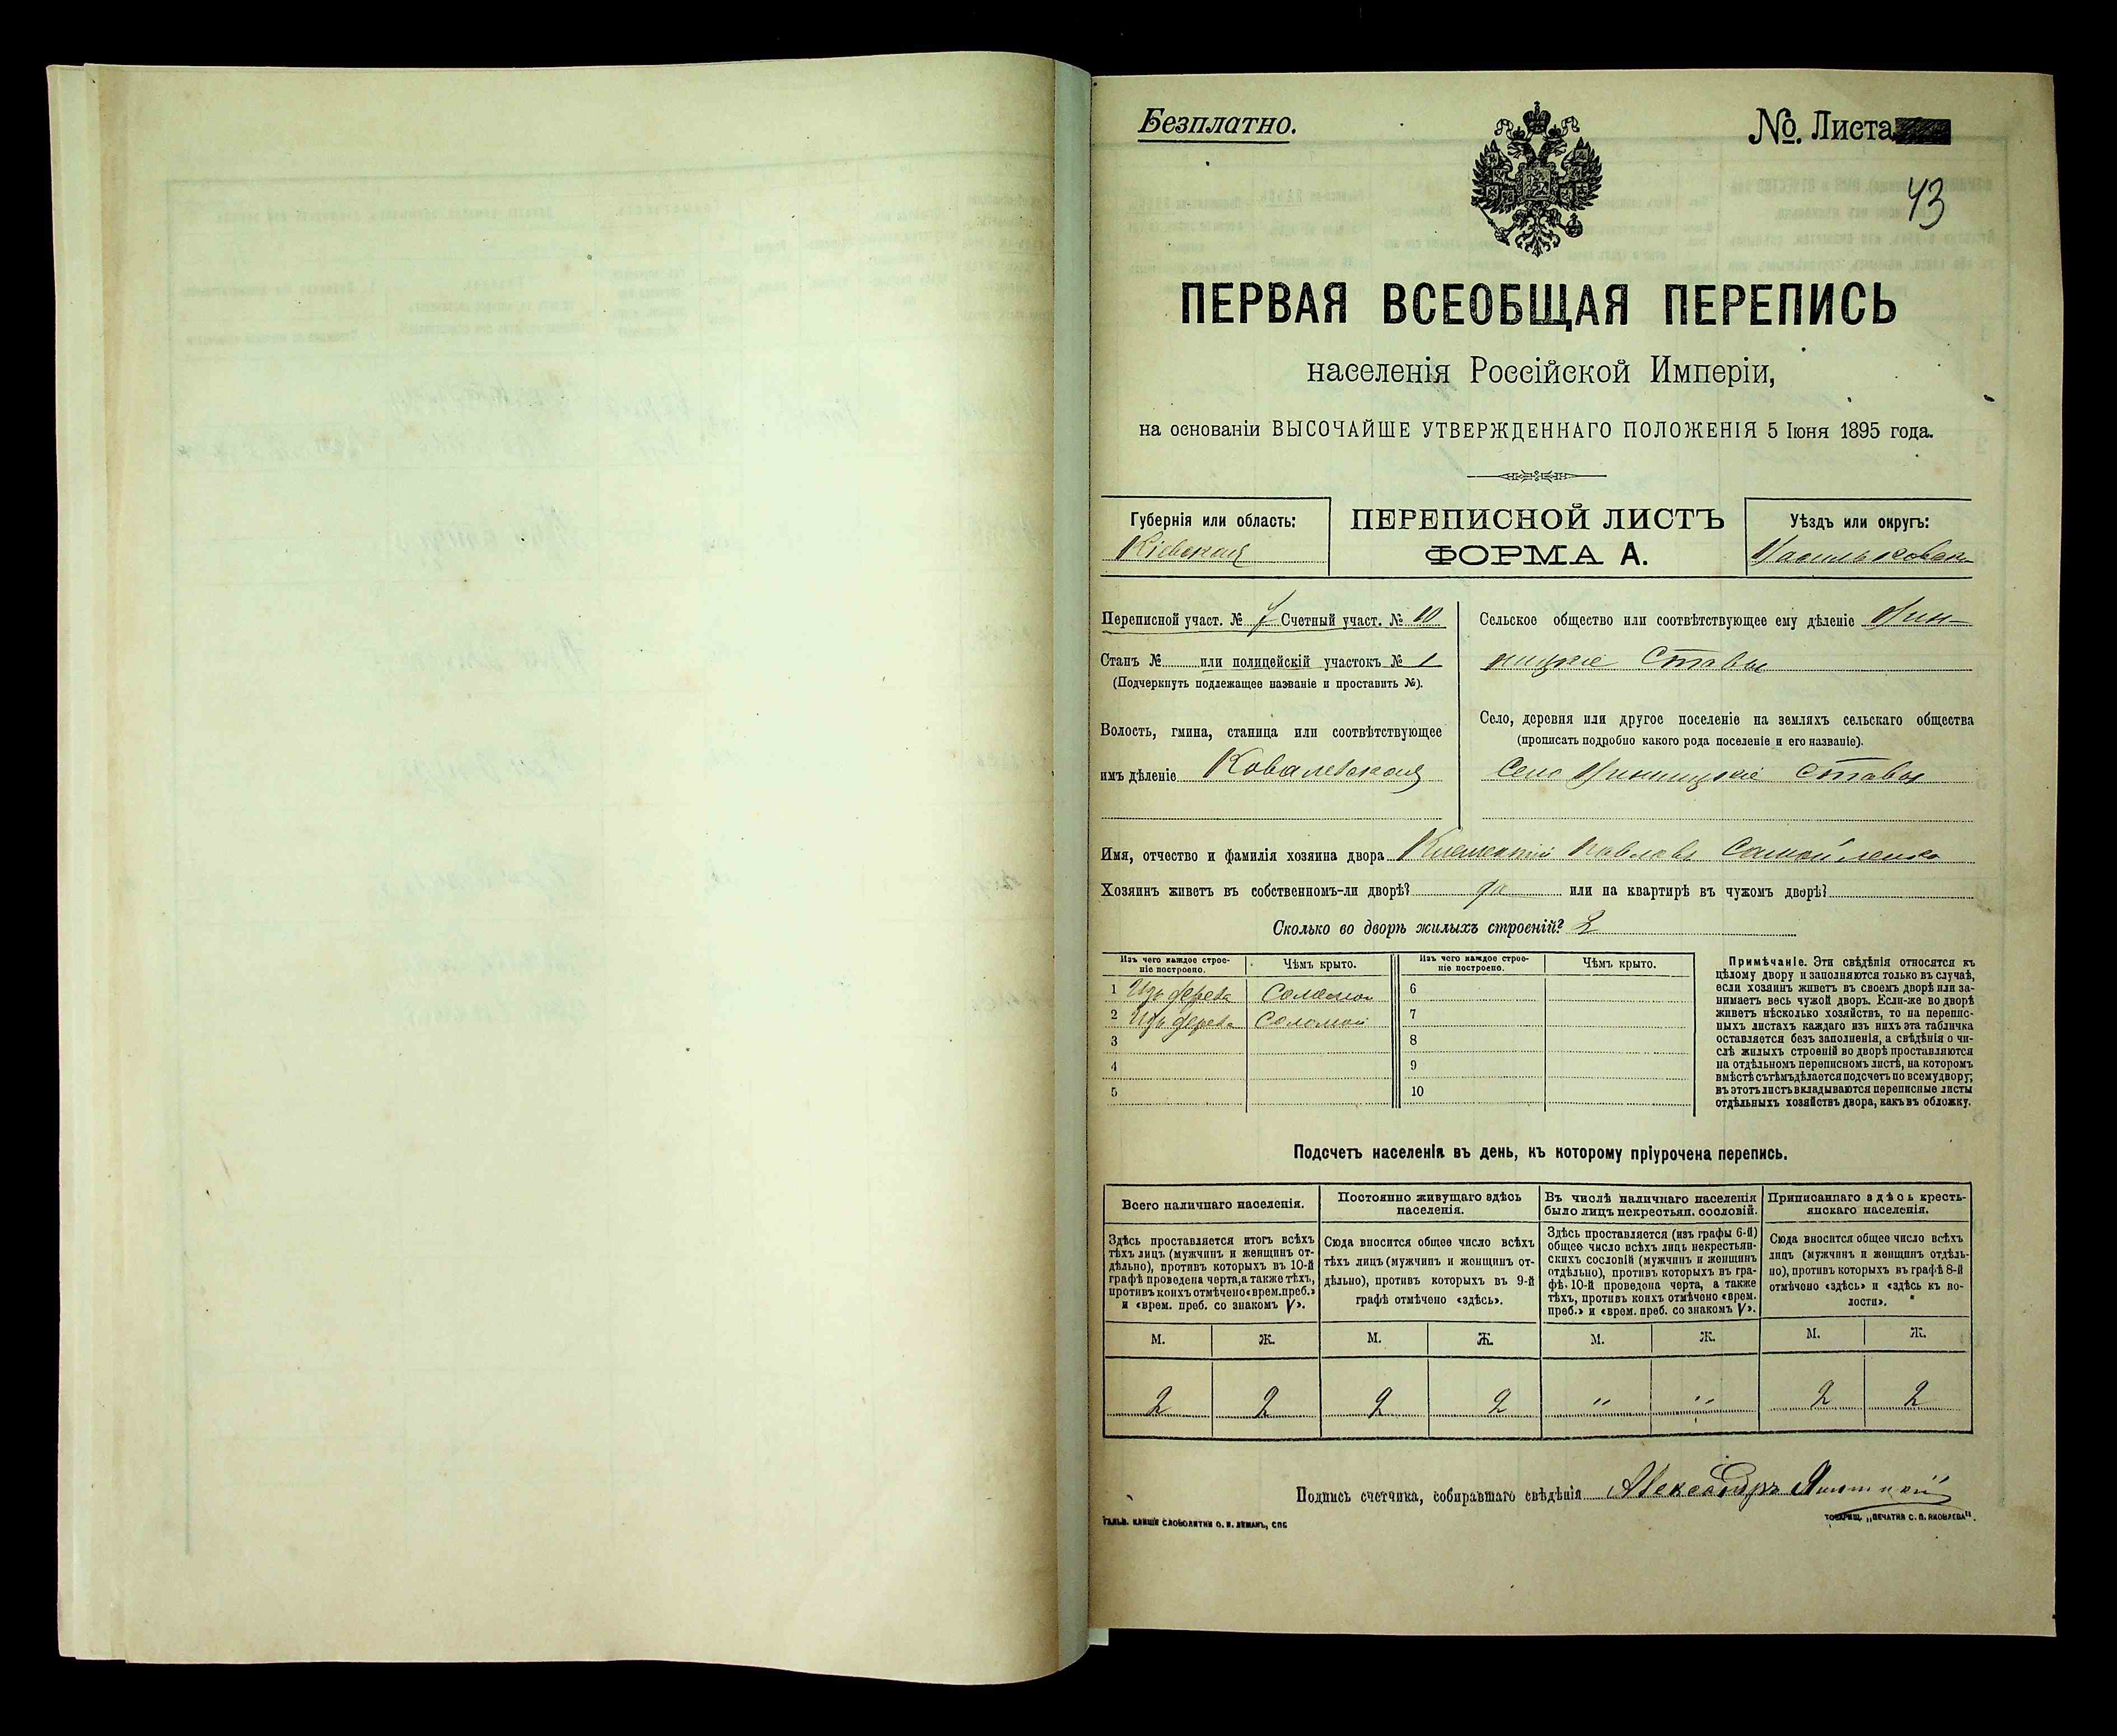 Безплатно.
№. Листа
43
ПЕРВАЯ ВСЕОБЩАЯ ПЕРЕПИСЬ
населенія Россійской Имперіи,
на основаніи ВЫСОЧАЙШЕ УТВЕРЖДЕННАГО ПОЛОЖЕНІЯ 5 Іюня 1895 года.
Губернія или область:
Кіевская
ПЕРЕПИСНОЙ ЛИСТЪ
ФОРМА А.
Уѣздъ или округъ:
Васильковск
Переписной участ. № 7 Счетный участ. № 10
Станъ № или полицейскій участокъ № 1
(Подчеркнуть подлежащее названіе и проставить №).
Волость, гмина, станица или соотвѣтствующее
имъ дѣленіе Ковалевская
Сельское общество или соотвѣтствующее ему дѣленіе Вин-
ницкіе Ставы
Село, деревня или другое поселеніе на земляхъ сельскаго общества
(прописать подробно какого рода поселеніе и его названіе).
Село Винницкіе Ставы
Имя, отчество и фамилія хозяина двора Климентій Павловъ Самойленко
Хозяинъ живетъ въ собственномъ-ли дворѣ? да или на квартирѣ въ чужомъ дворѣ?
Сколько во дворѣ жилыхъ строеній? 2
Изъ чего каждое строе-
ніе построено.
Чѣмъ крыто.
Изъ чего каждое строе-
ніе построено.
Чѣмъ крыто.
1 Изъ дерева Соломой
2 Изъ дерева Соломой
3
4
5
6
7
8
9
10
Примѣчаніе. Эти свѣдѣнія относятся къ
цѣлому двору и заполняются только въ случаѣ,
если хозяинъ живетъ въ своемъ дворѣ или за-
нимаетъ весь чужой дворъ. Если-же во дворѣ
живетъ нѣсколько хозяйствъ, то на перепис-
ныхъ листахъ каждаго изъ нихъ эта табличка
оставляется безъ заполненія, а свѣдѣнія о чи-
слѣ жилыхъ строеній во дворѣ проставляются
на отдѣльномъ переписномъ листѣ, на которомъ
вмѣстѣ съ тѣмъ дѣлается подсчетъ по всему двору;
въ этотъ листъ вкладываются переписные листы
отдѣльныхъ хозяйствъ двора, какъ въ обложку.
Подсчетъ населенія въ день, къ которому пріурочена перепись.
Всего наличнаго населенія.
Здѣсь проставляется итогъ всѣхъ
тѣхъ лицъ (мужчинъ и женщинъ от-
дѣльно), противъ которыхъ въ 10-й
графѣ проведена черта, а также тѣхъ,
противъ коихъ отмѣчено «врем. преб.»
и «врем. преб. со знакомъ V».
Постоянно живущаго здѣсь
населенія.
Сюда вносится общее число всѣхъ
тѣхъ лицъ (мужчинъ и женщинъ от-
дѣльно), противъ которыхъ въ 9-й
графѣ отмѣчено «здѣсь».
Въ числѣ наличнаго населенія
было лицъ некрестьян. сословій.
Здѣсь проставляется (изъ графы 6-й)
общее число всѣхъ лицъ некрестьян-
скихъ сословій (мужчинъ и женщинъ
отдѣльно), противъ которыхъ въ гра-
фѣ 10-й проведена черта, а также
тѣхъ, противъ коихъ отмѣчено «врем.
преб.» и «врем. преб. со знакомъ V».
Приписаннаго здѣсь кресть-
янскаго населенія.
Сюда вносится общее число всѣхъ
лицъ (мужчинъ и женщинъ отдѣль-
но), противъ которыхъ въ графѣ 8-й
отмѣчено «здѣсь» и «здѣсь къ во-
лости».
М. Ж. М. Ж. М. Ж. М. Ж.
2 2 2 2 " " 2 2
Подпись счетчика, собиравшаго свѣдѣнія Александръ
ГАЛЬВ. КЛИШЕ СЛОВОЛИТНИ О. И. ЛЕМАНЪ, СПБ
ТОВАРИЩ. „ПЕЧАТНЯ С. П. ЯКОВЛЕВА".